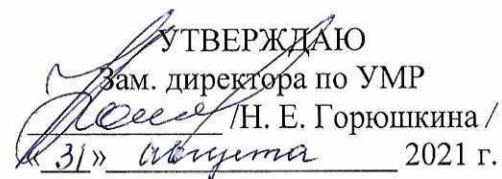 УТВЕРЖДАЮ
Зам. директора по УМР
/Н. Е. Горюшкина /
« 31 » августа 2021 г.